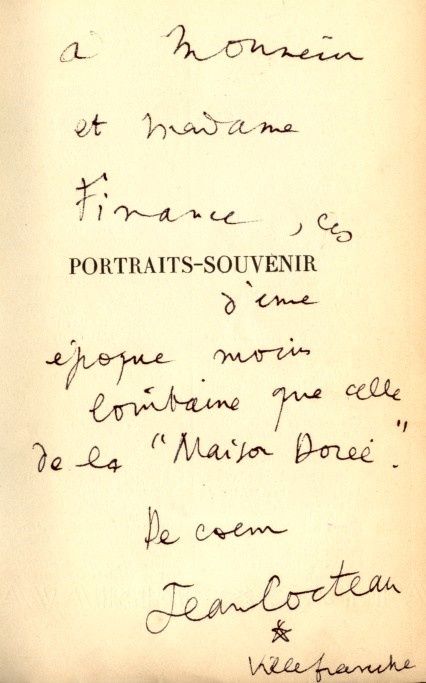 à Monsieur
et Madame
Finance, ces
PORTRAITS-SOUVENIR
d'une
époque moins
lointaine que celle
de la "Maison Dorée".
De coeur
Jean Cocteau
Villefranche